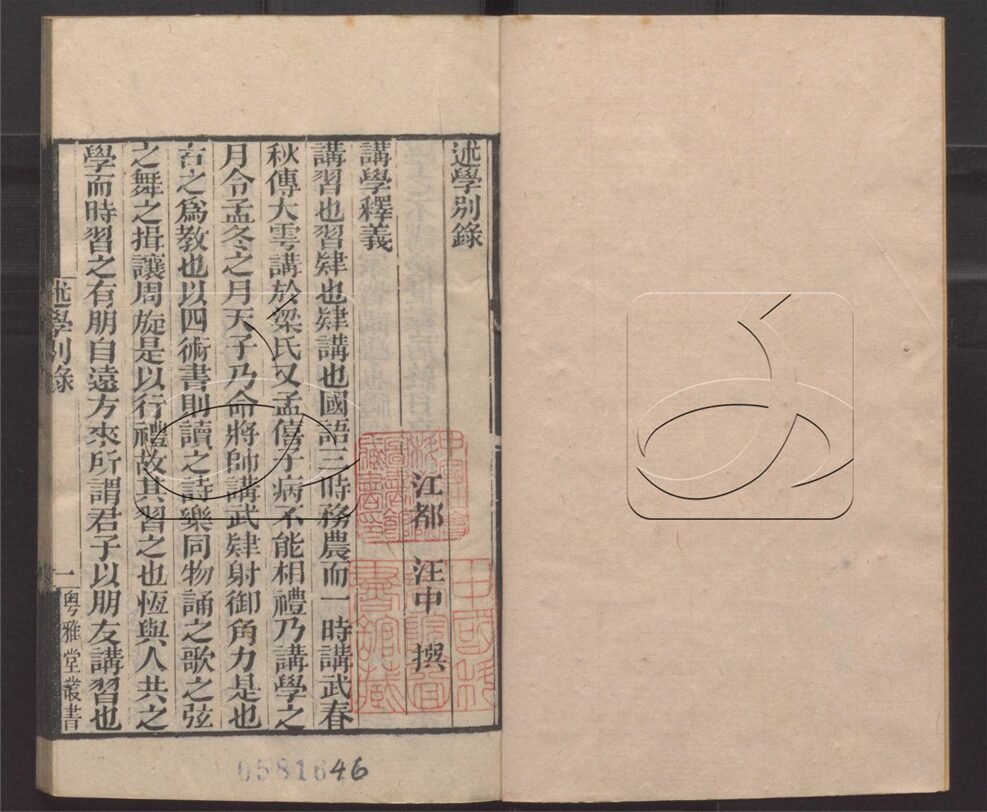 述學別錄
江都 汪中 撰
講學釋義
講習也習肄也肄講也國語三時務農而一時講武春
秋傳大雩講於梁氏又孟僖子病不能相禮乃講學之
月令孟冬之月天子乃命將帥講武肄射御角力是也
古之爲教也以四術書則讀之詩樂同物誦之歌之弦
之舞之揖讓周旋是以行禮故其習之也恆與人共之
學而時習之有朋自遠方來所謂君子以朋友講習也
述學別錄
一
粤雅堂叢書
0581646